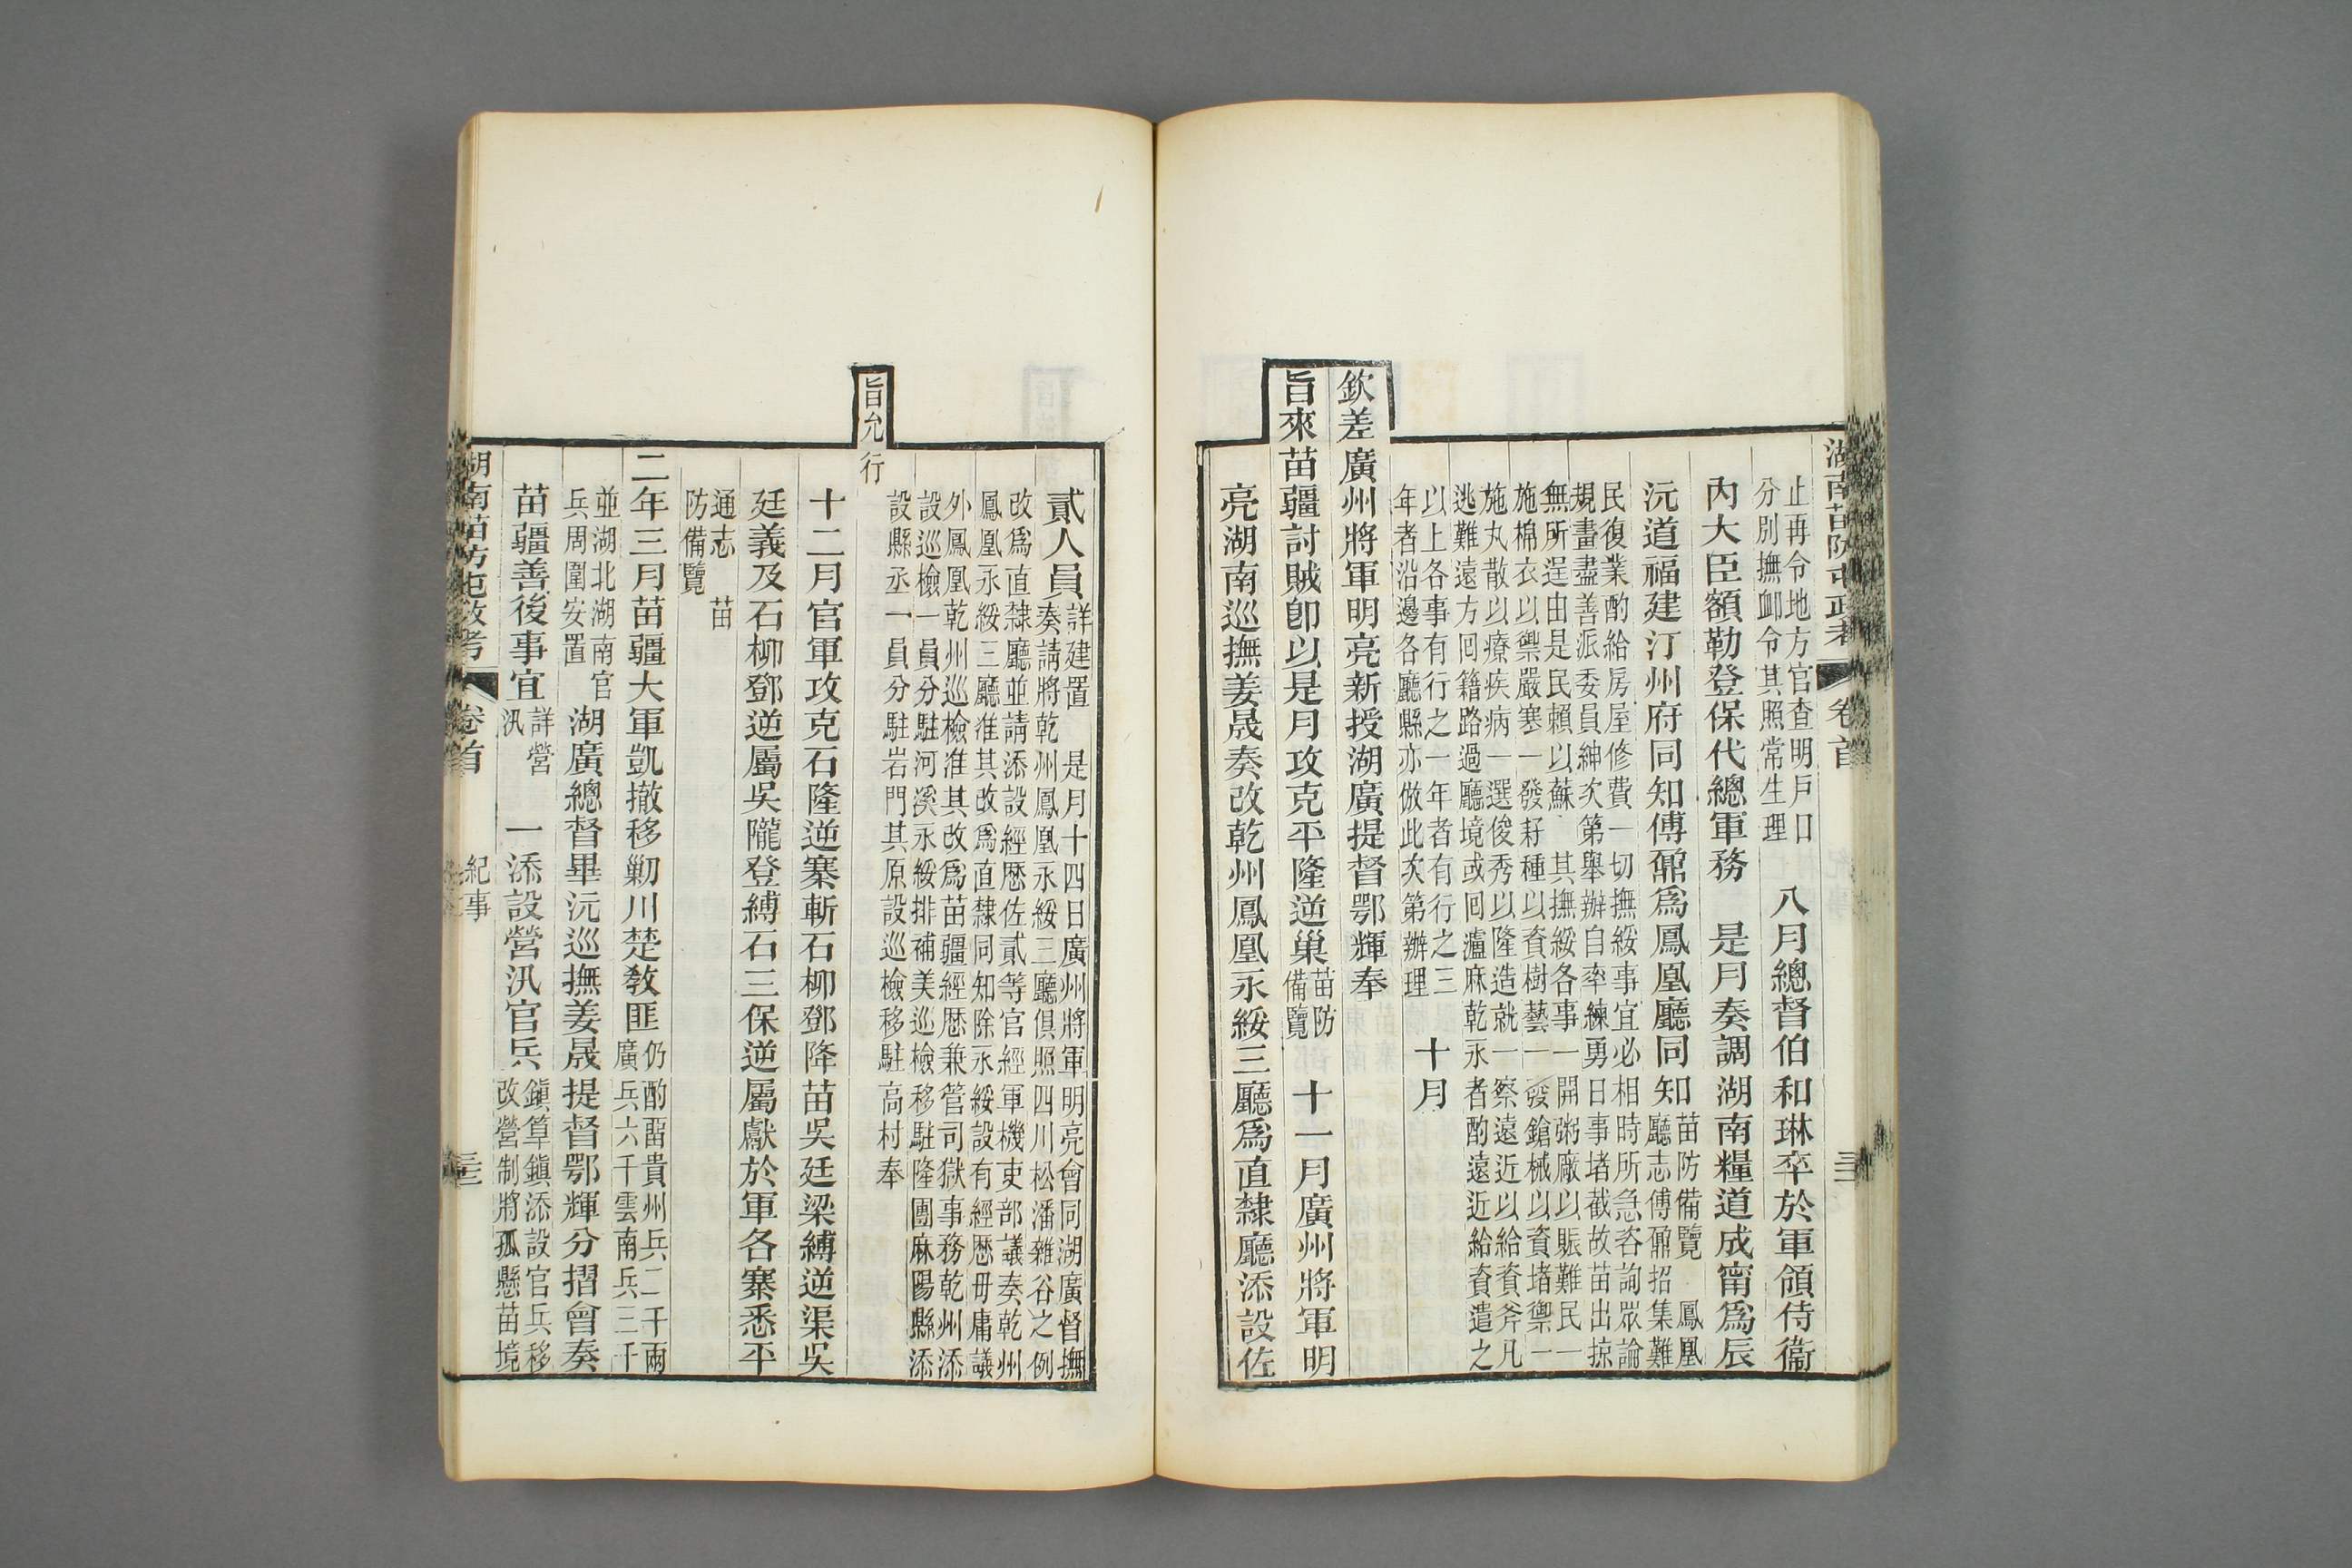 湖南苗防屯政考 卷首
止再令地方官查明戶口
分別撫卹令其照常生理
八月總督伯和琳卒於軍領侍衞
內大臣額勒登保代總軍務 是月奏調湖南糧道成甯爲辰
沅道福建汀州府同知傅鼐爲鳳凰廳同知
苗防備覽 鳳凰
廳志傅鼐招集難
民復業酌給房屋修費一切撫綏事宜必相時所急咨詢眾論
規畫盡善派委員紳次第舉辦自率練勇日事堵截故苗出掠
無所逞由是民賴以蘇 其撫綏各事一開粥廠以賑難民一
施棉衣以禦嚴寒一發耔種以資樹藝一發鎗械以資堵禦一
施丸散以療疾病一選俊秀以隆造就一察遠近以給資斧凡
逃難遠方回籍路過廳境或回瀘麻乾永者酌遠近給資遣之
以上各事有行之一年者有行之三
年者沿邊各廳縣亦倣此次第辦理
十月
欽差廣州將軍明亮新授湖廣提督鄂輝奉
旨來苗疆討賊卽以是月攻克平隆逆巢
苗防
備覽
十一月廣州將軍明
亮湖南巡撫姜晟奏改乾州鳳凰永綏三廳爲直隸廳添設佐
貳人員
詳建置 是月十四日廣州將軍明亮會同湖廣督撫
奏請將乾州鳳凰永綏三廳俱照四川松潘雜谷之例
改爲直隸廳並請添設經歴佐貳等官經軍機吏部議奏乾州
鳳凰永綏三廳准其改爲直隸同知除永綏設有經歴毋庸議
外鳳凰乾州巡檢准其改爲苗疆經歴兼管司獄事務乾州添
設巡檢一員分駐河溪永綏排補美巡檢移駐隆團麻陽縣添
設縣丞一員分駐岩門其原設巡檢移駐高村奉
旨允行
十二月官軍攻克石隆逆寨斬石柳鄧降苗吳廷梁縛逆渠吳
廷義及石柳鄧逆屬吳隴登縛石三保逆屬獻於軍各寨悉平
通志 苗
防備覽
二年三月苗疆大軍凱撤移勦川楚教匪
仍酌畱貴州兵二千兩
廣兵六千雲南兵三千
並湖北湖南官
兵周圍安置
湖廣總督畢沅巡撫姜晟提督鄂輝分摺會奏
苗疆善後事宜
詳營
汛
一添設營汛官兵
鎮筸鎮添設官兵移
改營制將孤懸苗境
湖南苗防屯政考 卷首 紀事